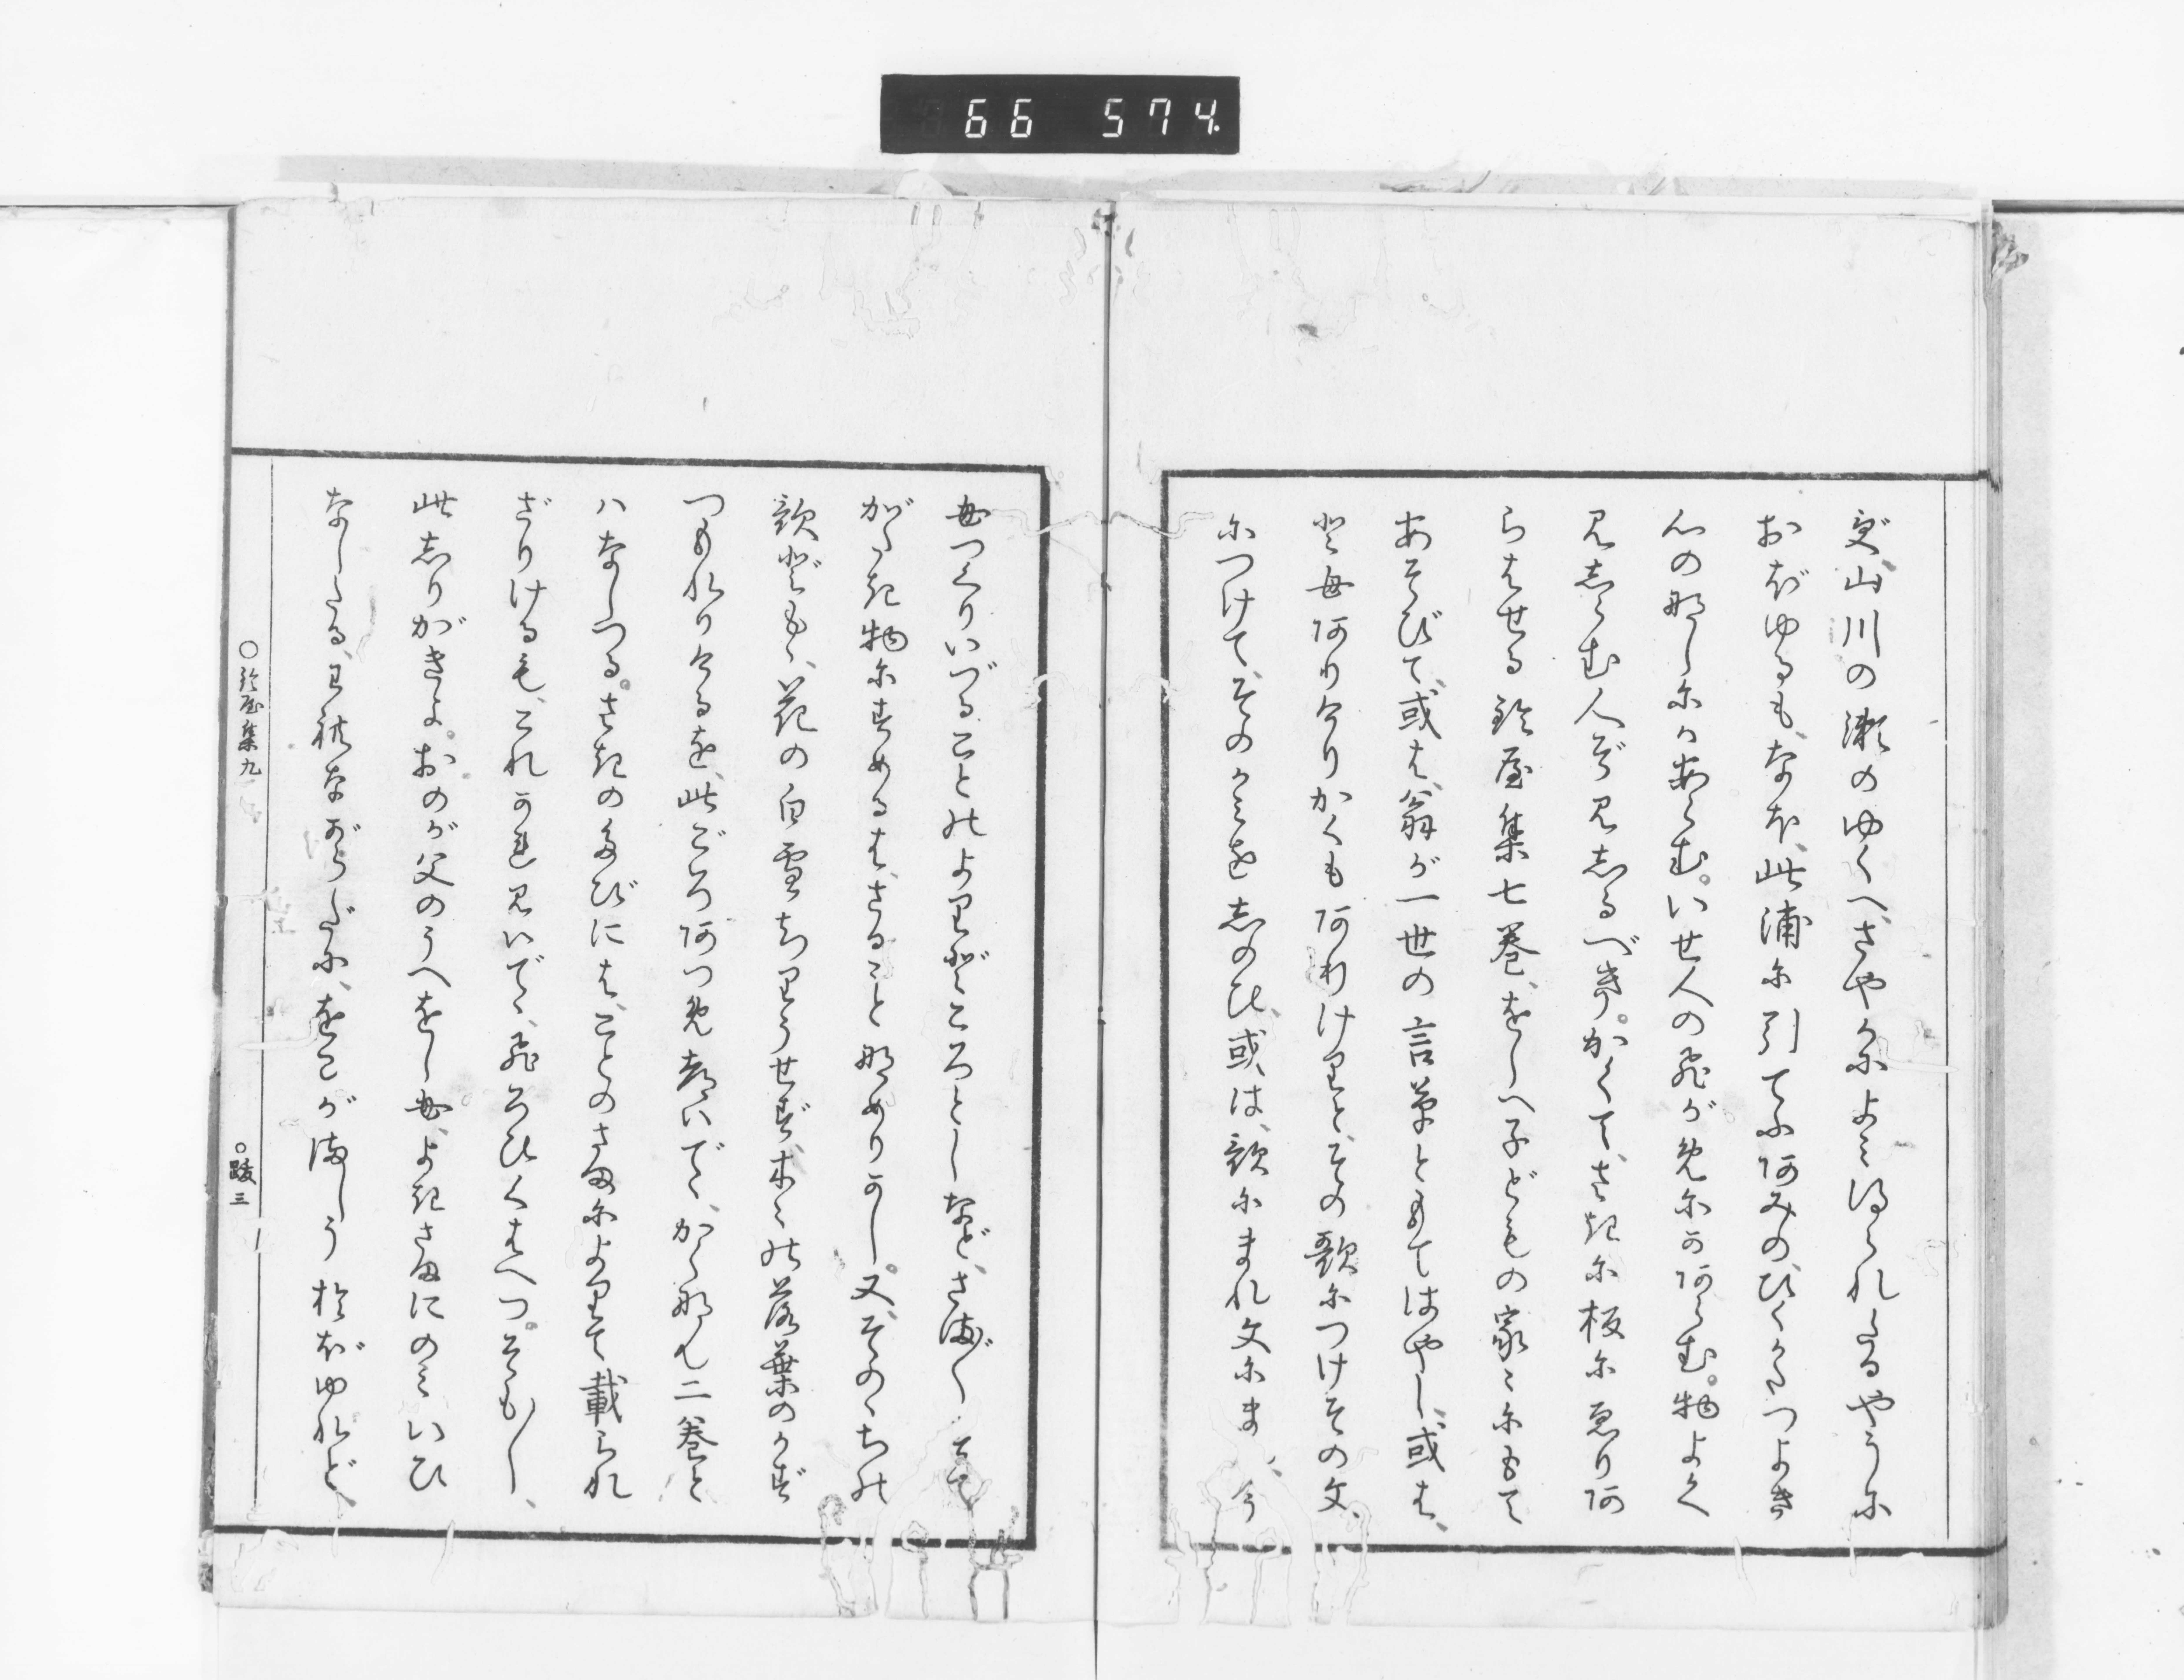 66 574.
ど、山川の瀬のゆくへ、さやかによみ得られたるやうに
おぼゆるも、なほ、此浦に引てふあみの、ひくかたつよき
心のなしにかあらむ。いせ人のひがめにかあらむ。物よく
見しらむ人ぞ見しるべき。かくて、さきに板にゑりあ
らはせる鈴屋集七巻、をしへ子どもの家々にもて
あそびて、或は、翁が一世の言草ともてはやし、或は、
ともありけりかくもありけりと、その歌につけその文
につけて、そのかみをしのひ、或は、歌にまれ文にま
もつくりいづることのよりどころとしなど、さまざま
がたき物にすめるは、さること なめりかし。又、そのゝちの
歌どもゝ、花の白雪ちりうせず、木々の落葉のかず
つもれりけるを、此ごろあつめ出いでゝ、かくなん二巻と
ハなしつる。さきのたびには、ことのさまによりて載られ
ざりけるも、これかれ見いでゝ、ひろひくはへつ。そも〱、
此しりがきよ。おのが父のうへをしも、よきさまにのみいひ
なしたる、われながらだに、をこがましうおぼゆれど、
○鈴屋集九
○跋三